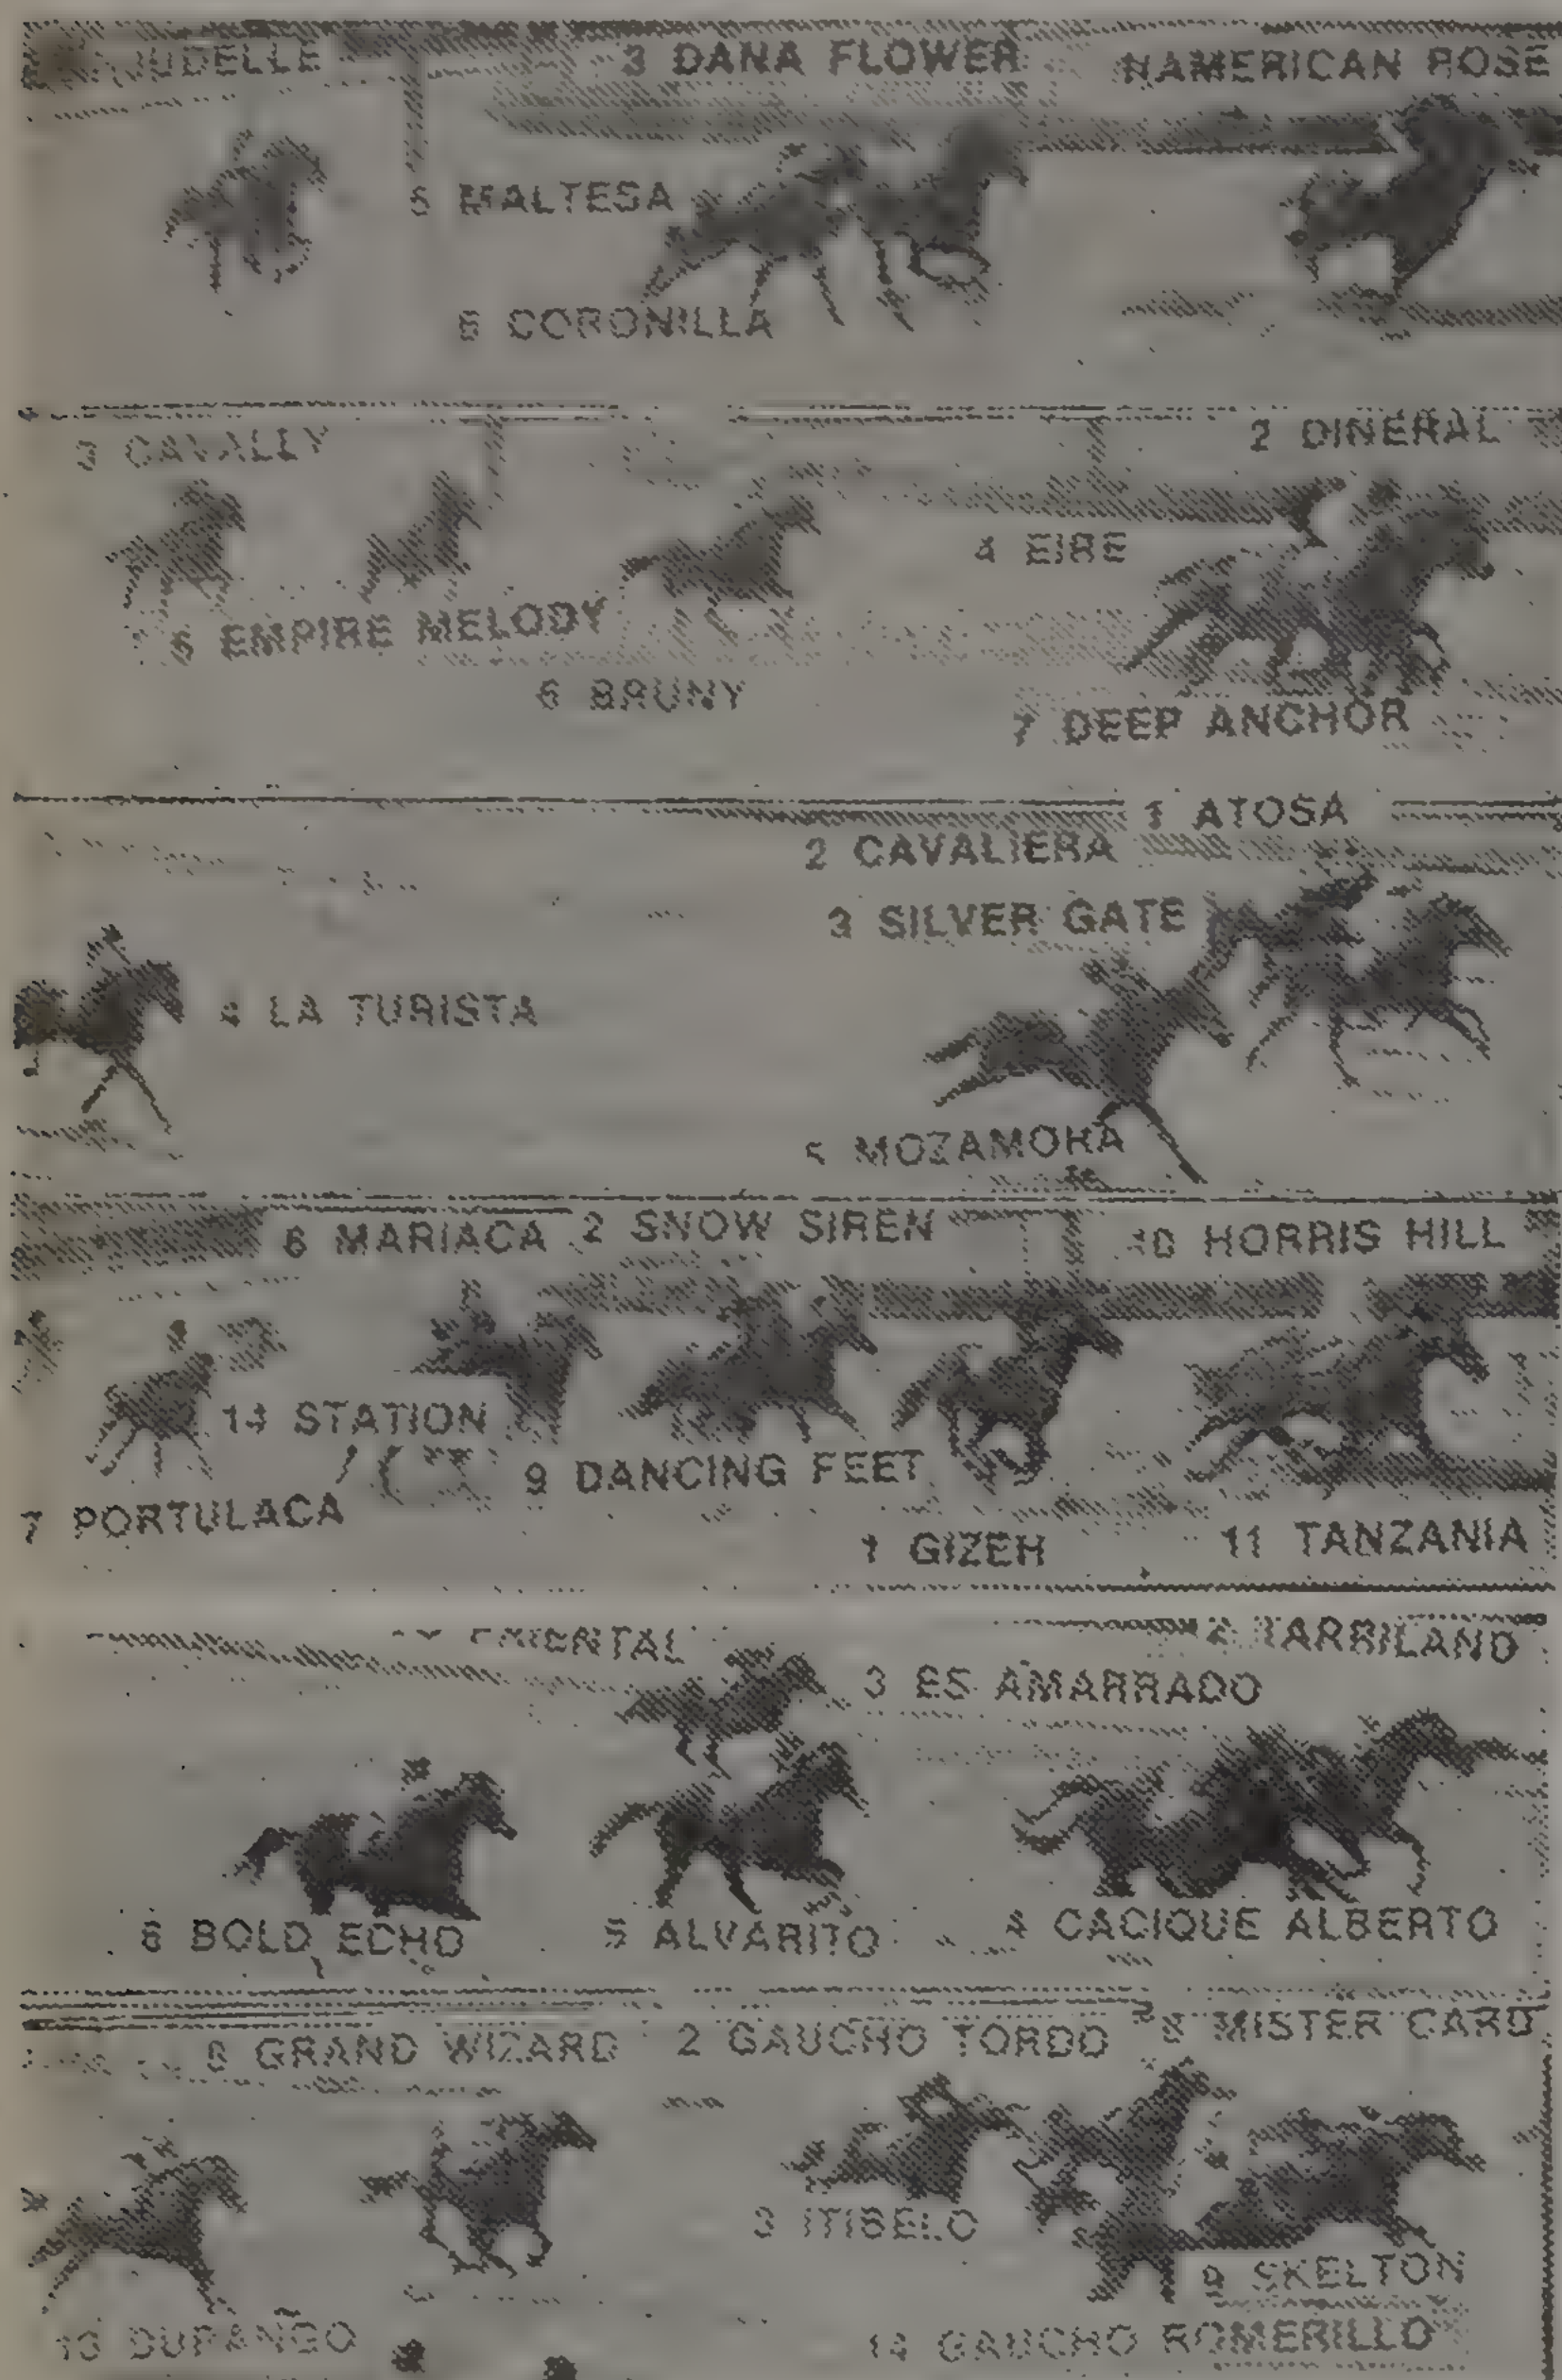 3 DANA FLOWER
AMERICAN ROSE
5 MALTESA
6 CORONILLA
3 CAVALLY
2 DINERAL
4 EIRE
5 EMPIRE MELODY
6 BRUNY
7 DEEP ANCHOR
1 ATOSA
2 CAVALIERA
3 SILVER GATE
4 LA TURISTA
5 MOZAMOHA
6 MARIACA
2 SNOW SIREN
10 HORRIS HILL
14 STATION
9 DANCING FEET
7 PORTULACA
1 GIZEH
11 TANZANIA
3 ES AMARRADO
6 BOLD ECHO
5 ALVARITO
4 CACIQUE ALBERTO
GRAND WIZARD
2 GAUCHO TORDO
8 MISTER CARD
3 ITIBELO
9 SKELTON
13 DURANGO
14 GAUCHO ROMERILLO